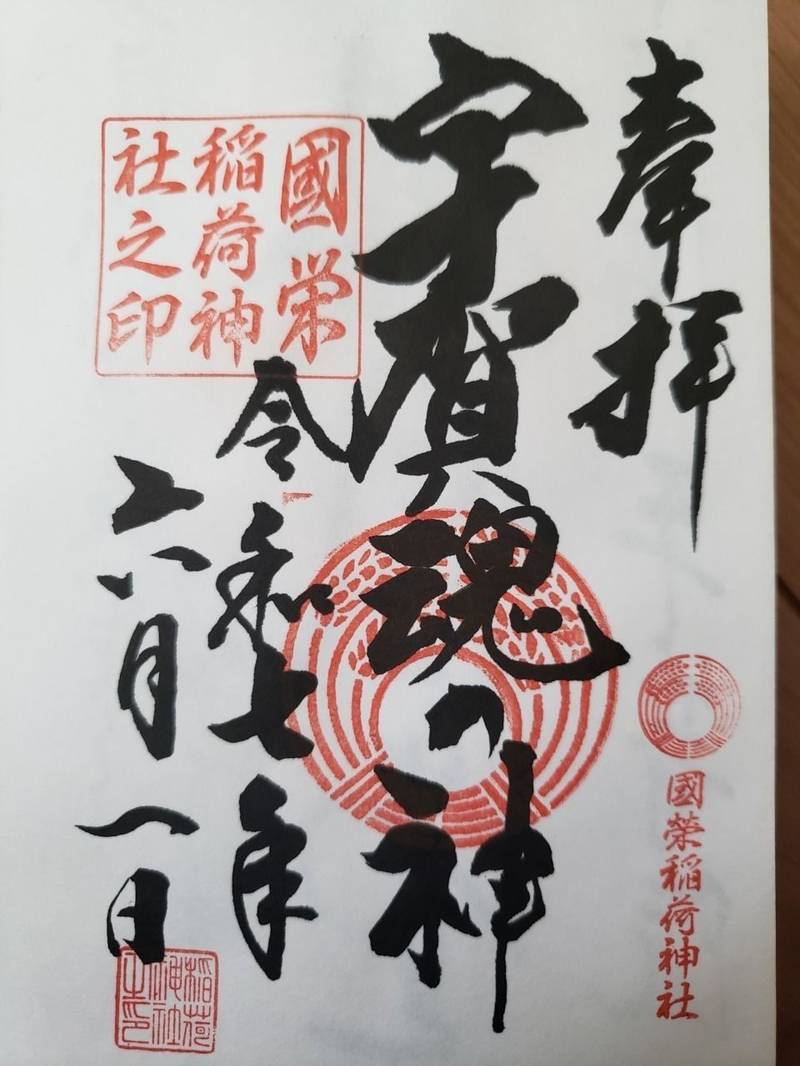 奉拝
國榮稲荷神社
宇賀魂の神
國栄
稲荷神
社之印
令和七年
六月一日
稲荷
神社
之印